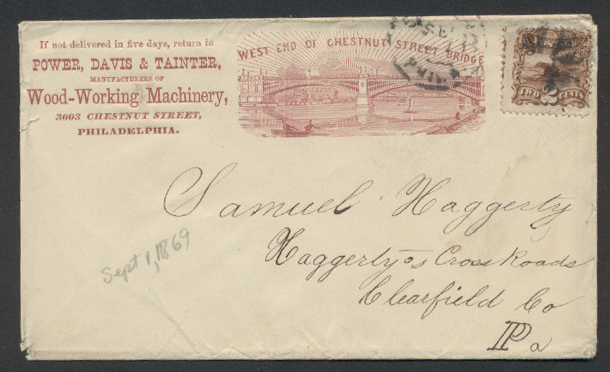 If not delivered in five days, return to
POWER, DAVIS & TAINTER,
MANUFACTURERS OF
Wood-Working Machinery,
3003 CHESTNUT STREET,
PHILADELPHIA.
WEST END OF CHESTNUT STREET BRIDGE
Samuel Haggerty
Haggerty's Cross Roads
Clearfield Co
Pa
Sept 1, 1869